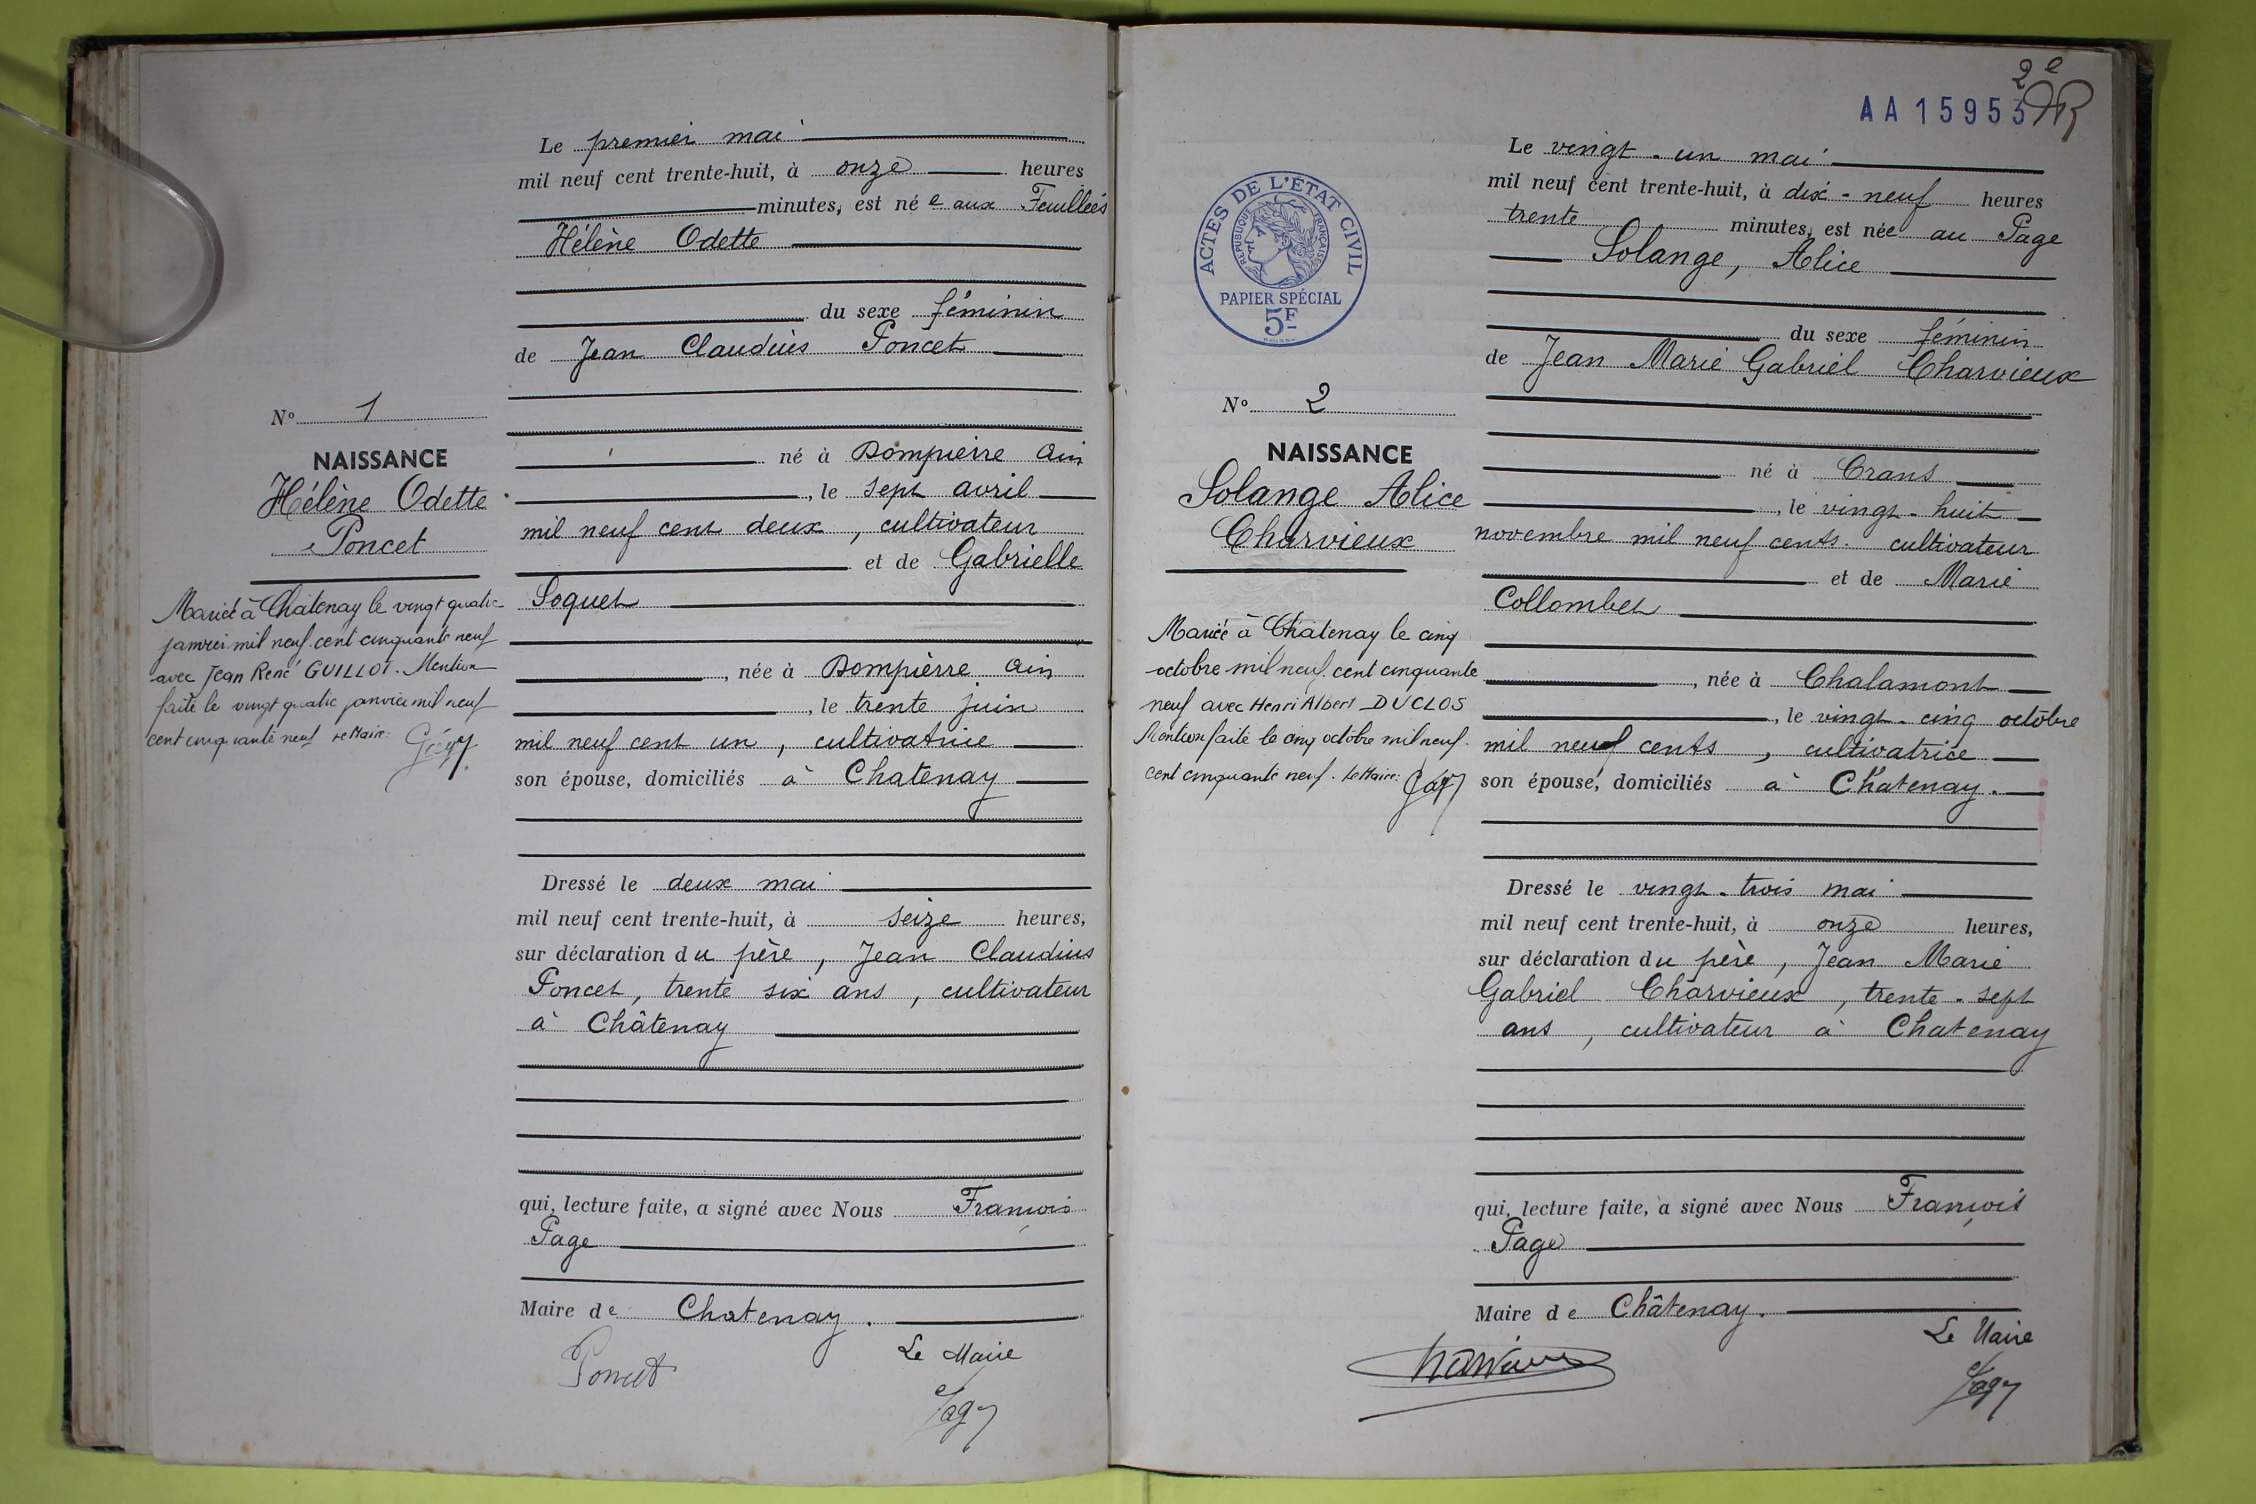 Le premier mai
mil neuf cent trente-huit, à onze heures
minutes, est née aux Feuillées
Hélène Odette
du sexe féminin
de Jean Claudius Poncet
né à Dompierre Ain
, le sept avril
mil neuf cent deux, cultivateur
et de Gabrielle
Soquet
, née à Dompierre Ain
, le trente juin
mil neuf cent un, cultivatrice
son épouse, domiciliés à Chatenay
Dressé le deux mai
mil neuf cent trente-huit, à seize heures,
sur déclaration du père, Jean Claudius
Poncet, trente six ans, cultivateur
à Châtenay
qui, lecture faite, a signé avec Nous François
Page
Maire de Chatenay.
Le Maire
Poncet
Page
N° 1
NAISSANCE
Hélène Odette
Poncet
Mariée à Châtenay le vingt quatre
janvier mil neuf cent cinquante neuf
avec Jean René GUILLOT. Mention
faite le vingt quatre janvier mil neuf
cent cinquante neuf Le Maire:
2e
AA15953
ACTES DE L'ÉTAT CIVIL
RÉPUBLIQUE FRANÇAISE
PAPIER SPÉCIAL
5F
N° 2
NAISSANCE
Solange Alice
Charvieux
Mariée à Châtenay le cinq
octobre mil neuf cent cinquante
neuf avec Henri Albert DUCLOS
Mention faite le cinq octobre mil neuf
cent cinquante neuf. Le Maire:
Le vingt-un mai
mil neuf cent trente-huit, à dix-neuf heures
trente minutes, est née au Page
Solange, Alice
du sexe féminin
de Jean Marie Gabriel Charvieux
né à Crans
, le vingt-huit
novembre mil neuf cents. cultivateur
et de Marie
Collombet
, née à Chalamont
, le vingt-cinq octobre
mil neuf cents, cultivatrice
son épouse, domiciliés à Châtenay.
Dressé le vingt-trois mai
mil neuf cent trente-huit, à onze heures,
sur déclaration du père, Jean Marie
Gabriel Charvieux, trente-sept
ans, cultivateur à Chatenay
qui, lecture faite, a signé avec Nous François
Page
Maire de Châtenay.
Le Maire
Charvieux
Page